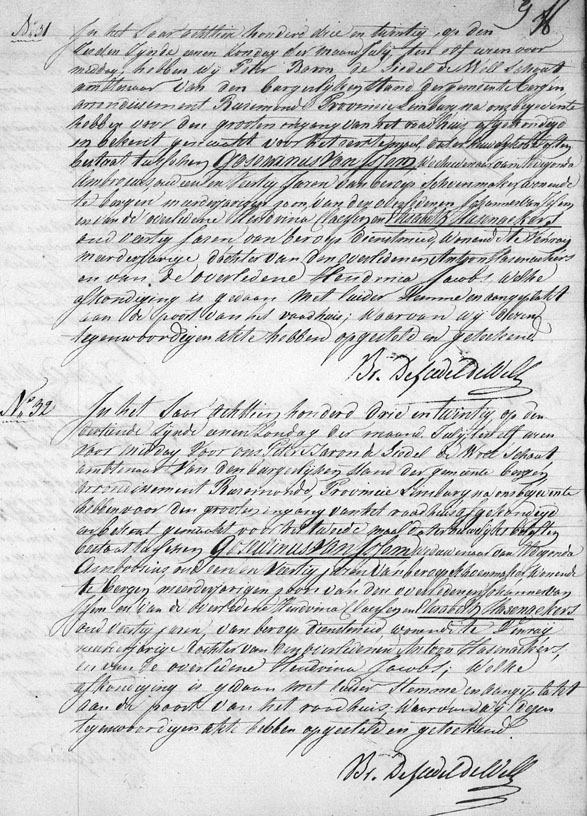 No. 31
In het Jaar achttien honderd drie en twintig op den
zynde eenen Zondag der maand July ten elf uren voor
middag, hebben wij Peter Baron de Liedel de Well Schout
ambtenaar van den burgerlyken stand der gemeente bergen
arrondissement Ruremonde Provincie Limburg na ons begeven te
hebben voor den grooten ingang van het raadhuis afgekondigd
en bekent gemaakt voor het eerste maal dat er huwelyks beloften
bestaat tusschen Gosewinus van Issem weduwenaar van Allegonda
Ambrosius oud een en veertig Jaren van beroep schoenmaker wonende
te bergen meerderjarigen zoon van den overledenen Johannes van Issem
en van de overledene Hendrina Claessen en Elisabeth Hasenackers
oud veertig Jaren van beroep dienstmeid, wonend te Venray
meerderjarige dochter van den overledenen Antoon Hasenackers
en van de overledene Hendrina Jacobs welke
afkondiging is gedaan met luider stemme en aangeplakt
aan de poort van het raadhuis; waarvan wij dezen
tegenwoordigen akte hebben opgesteld en geteekend.
Br. De Liedel de Well
No. 32
In het Jaar achttien honderd drie en twintig op den
zynde eenen Zondag der maand July ten elf uren
voor middag voor ons Peter Baron de Liedel de Well Schout
ambtenaar van den burgerlyken stand der gemeente bergen
arrondissement Ruremonde, Provincie Limburg na ons begeven te
hebben voor den grooten ingang van het raadhuis afgekondigd
en bekent gemaakt voor het tweede maal dat er huwelyks beloften
bestaat tusschen Gosewinus van Issem weduwenaar van Allegonda
Ambrosius oud een en veertig jaren van beroep schoenmaker Wonende
te bergen meerderjarigen zoon van den overledenen Johannes van
Issem en van de overledene Hendrina Claessen en Elisabeth Hasenackers
oud veertig jaren, van beroep dienstmeid, wonende te Venray
meerderjarige dochter van den overledenen Antoon Hasenackers,
en van de overledene Hendrina Jacobs; welke
afkondiging is gedaan met luider Stemme en aangeplakt
aan de poort van het raadhuis, waarvan wij dezen
tegenwoordigen akte hebben opgesteld en geteekend.
Br. De Liedel de Well